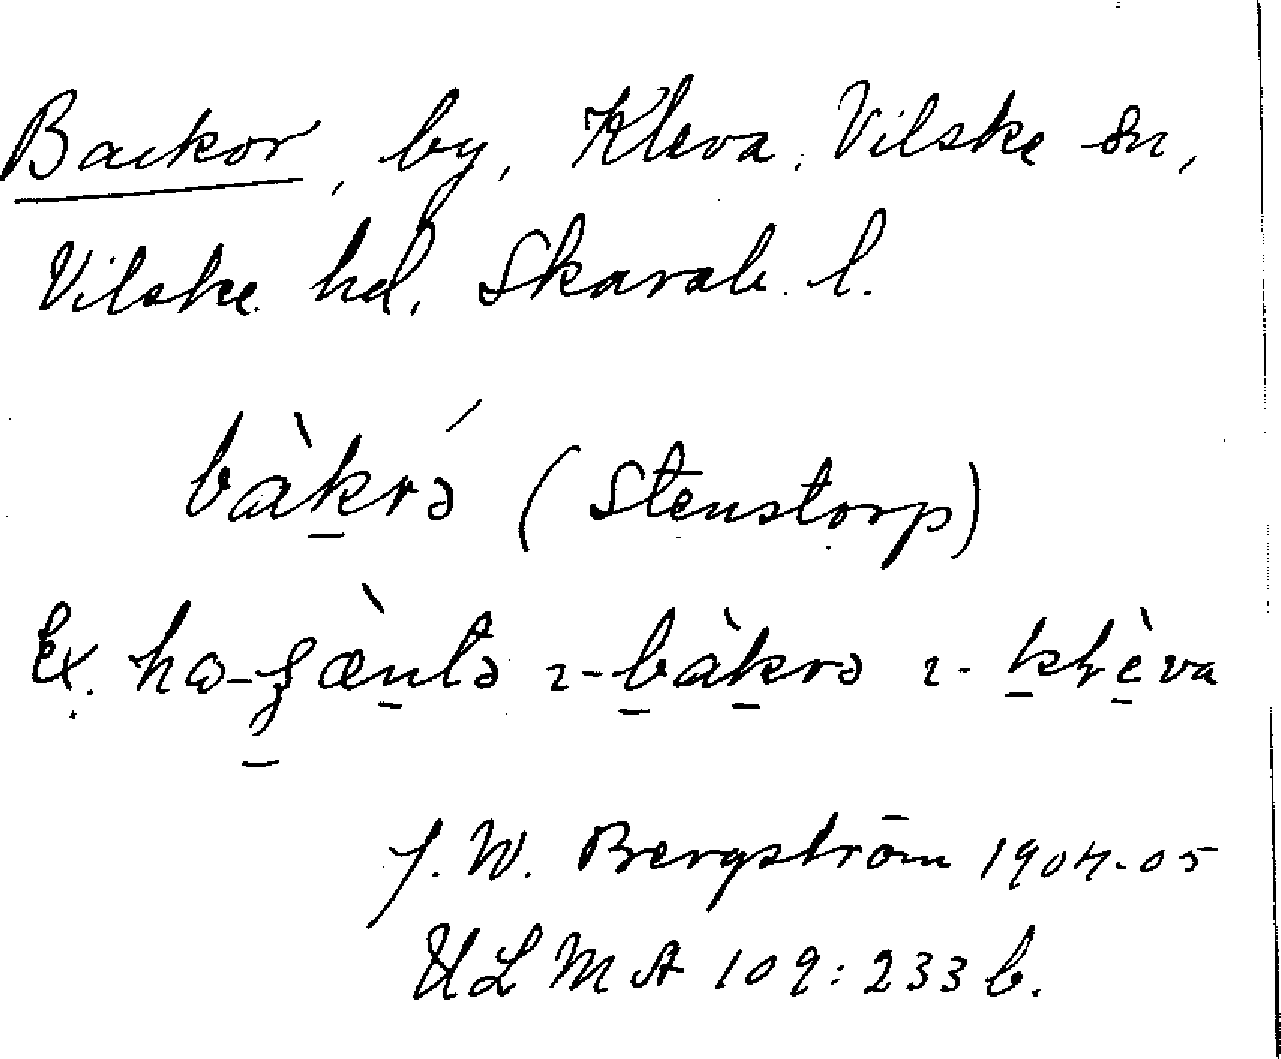 Backor, by, Kleva, Vilske sn,
Vilske hd, Skarab. l.
bàkrə́ (Stenstorp)
Ex. hɷ-gæ̀ntə ɪ-bàkrə ɪ-klèva
J. W. Bergström 1904-05
ULMA 109:233 b.